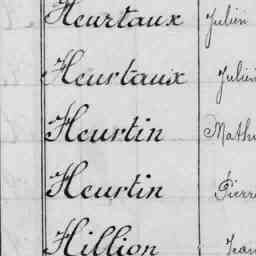 Heurtaux Julien
Heurtaux Julien
Heurtin Mathu
Heurtin Pierre
Hillion Jean